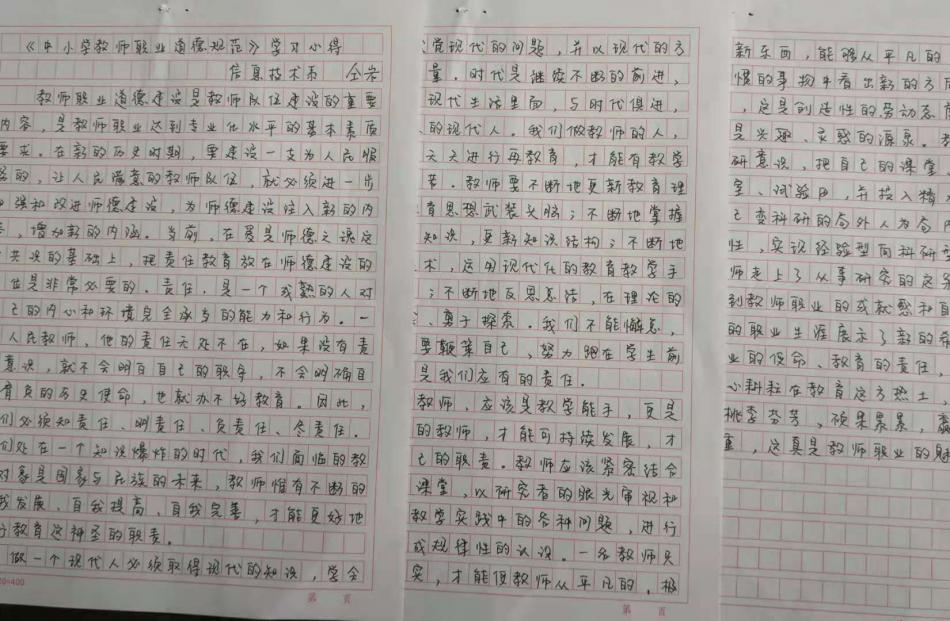 《中小学教师职业道德规范》学习心得
信息技术系 仝岩
教师职业道德建设是教师队伍建设的重要
内容，是教师职业达到专业化水平的基本素质
要求。在新的历史时期，要建设一支为人民服
的，让人民满意的教师队伍，就必须进一步
强和改进师德建设，为师德建设注入新的内
，增加新的内涵。当前，在爱是师德之魂这
共识的基础上，把责任教育放在师德建设的
位是非常必要的。责任，是一个成熟的人对
己的内心和环境完全承担的能力和行为。一
人民教师，他的责任无处不在，如果没有责
意识，就不会明白自己的职责，不会明确自
肩负的历史使命，也就办不好教育。因此，
们必须知责任、明责任、负责任、尽责任。
们处在一个知识爆炸的时代，我们面临的教
对象是国家与民族的未来，教师惟有不断的
我发展、自我提高、自我完善，才能更好地
行教育这神圣的职责。
做一个现代人必须取得现代的知识，学会
觉现代的问题，并以现代的方
量。时代是继续不断的前进，
现代生活里面，与时代俱进，
的现代人。我们做教师的人，
天天进行再教育，才能有教学
苦。教师要不断地更新教育理
育思想武装头脑；不断地掌握
知识，更新知识结构；不断地
术，运用现代化的教育教学手
；不断地反思总结，在理论的
、勇于探索。我们不能懈怠，
要鞭策自己，努力跑在学生前
是我们应有的责任。
教师，应该是教学能手，更是
的教师，才能可持续发展，才
己的职责。教师应该紧密结合
课堂，以研究者的眼光审视和
教学实践中的各种问题，进行
成规律性的认识。一名教师只
究，才能使教师从平凡的、极
新东西，能够从平凡的
惯的事物中看出新的方
，这是创造性的劳动态度
是兴趣、灵感的源泉。
研意识，把自己的课堂
室、试验田，并投入精
己变科研的局外人为局内
性，实现经验型向科研型
师走上了从事研究的这条
到教师职业的成就感和自
的职业生涯展示了新的希
业的使命、教育的责任，
心耕耘在教育这方热土，
桃李芬芳、硕果累累，
，这真是教师职业的魅
20×400
第 页
第 页